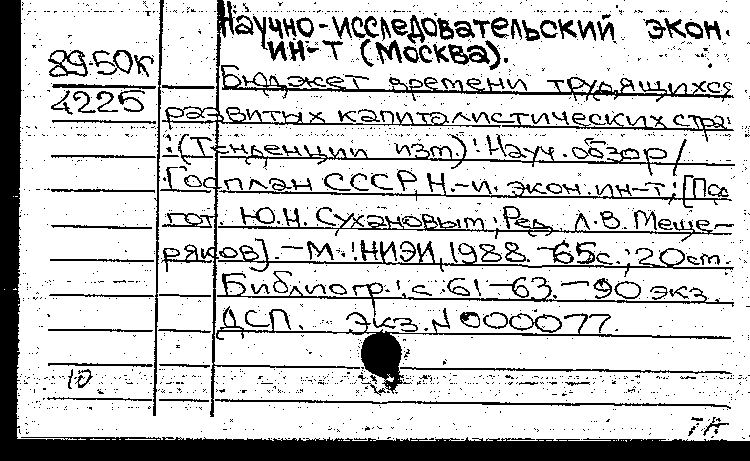 Научно-исследовательский экон.
ин-т (Москва).
89-50к
4225
Бюджет времени трудящихся
развитых капиталистических стра
:(Тенденции изм.): Науч. обзор /
Госплан СССР, Н.-и. экон. ин-т; [Под
гот. Ю.Н. Сухановым; Ред. Л.В. Меще-
ряков]. - М.: НИЭИ, 1988. - 65с.; 20см.
Библиогр.: с. 61-63. - 90 экз.
ДСП. Экз. N 000077.
10